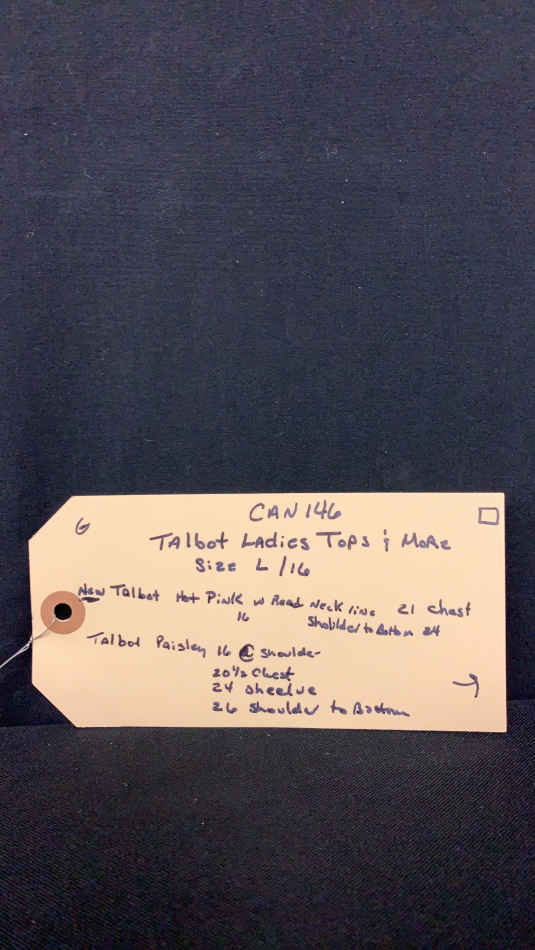 G
CAN 146
TAlbot LAdies Tops & MoRe
Size L / 16
New Talbot Hot Pink w Bead Neck line 21 Chest
16 Shoulder to Bottom 24
Talbot Paisley 16 @ Shoulder
20 1/2 Chest
24 Sheelve
26 Shoulder to Bottom